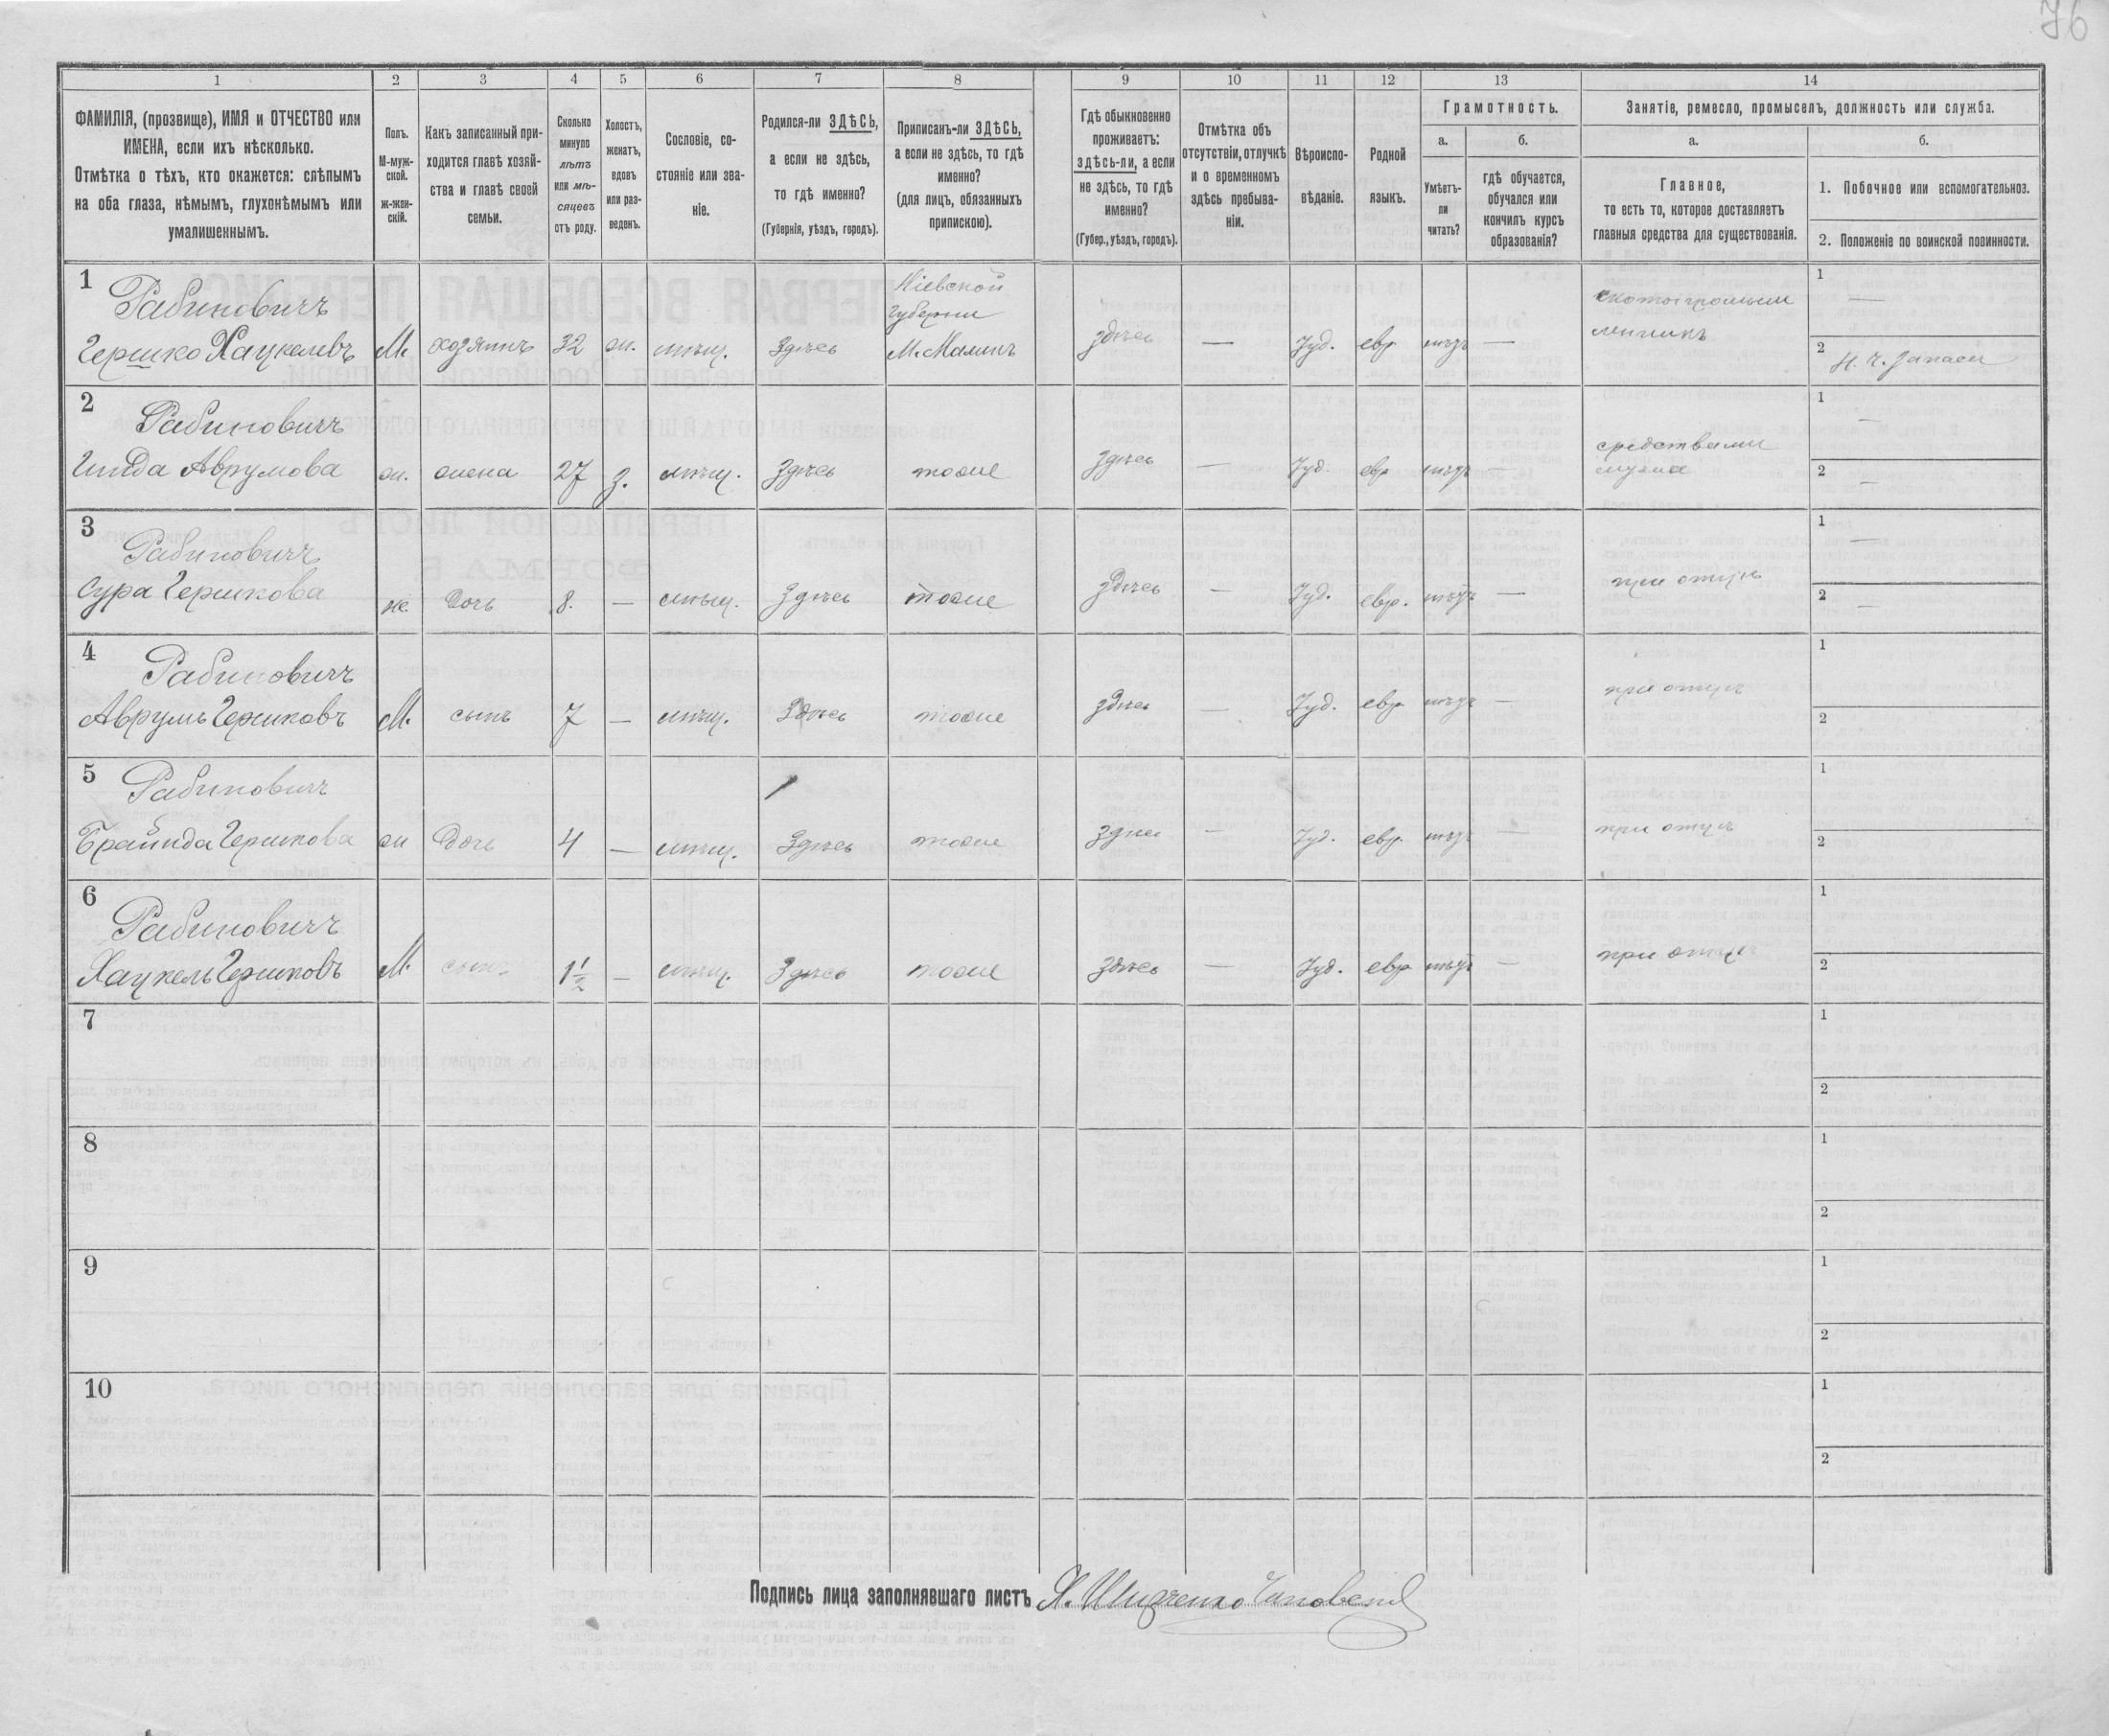 76
1 2 3 4 5 6 7 8 9 10 11 12 13 14
ФАМИЛІЯ, (прозвище), ИМЯ и ОТЧЕСТВО или
ИМЕНА, если ихъ нѣсколько.
Отмѣтка о тѣхъ, кто окажется: слѣпымъ
на оба глаза, нѣмымъ, глухонѣмымъ или
умалишеннымъ.
Полъ.
М-муж-
ской.
ж-жен-
скій.
Какъ записанный при-
ходится главѣ хозяй-
ства и главѣ своей
семьи.
Сколько
минуло
лѣтъ
или мѣ-
сяцевъ
отъ роду.
Холостъ,
женатъ,
вдовъ
или раз-
веденъ.
Сословіе, со-
стояніе или зва-
ніе.
Родился-ли ЗДѢСЬ,
а если не здѣсь,
то гдѣ именно?
(Губернія, уѣздъ, городъ).
Приписанъ-ли ЗДѢСЬ,
а если не здѣсь, то гдѣ
именно?
(для лицъ, обязанныхъ
припискою).
Гдѣ обыкновенно
проживаетъ:
здѣсь-ли, а если
не здѣсь, то гдѣ
именно?
(Губер., уѣздъ, городъ).
Отмѣтка объ
отсутствіи, отлучкѣ
и о временномъ
здѣсь пребыва-
ніи.
Вѣроиспо-
вѣданіе.
Родной
языкъ.
Грамотность.
а. б.
Умѣетъ-
ли
читать?
гдѣ обучается,
обучался или
кончилъ курсъ
образованія?
Занятіе, ремесло, промыселъ, должность или служба.
а. б.
Главное,
то есть то, которое доставляетъ
главныя средства для существованія.
1. Побочное или вспомогательное.
2. Положеніе по воинской повинности.
1 Рабиновичъ Кіевской 1 —
губерніи скотопромыш
Гершко Хацкелевъ М. хозяинъ 32 ж. мѣщ. Здѣсь М. Малинъ здѣсь — Іуд. евр. нѣтъ — ленникъ 2
2 Рабиновичъ средствами 1 —
Гинда Аврумова ж. жена 27 з. мѣщ. Здѣсь тоже здѣсь — Іуд. евр. нѣтъ — мужа 2 —
3 Рабиновичъ 1 —
Сура Гершкова ж. дочь 8. — мѣщ. Здѣсь тоже здѣсь — Іуд. евр. нѣтъ — при отцѣ 2 —
4 Рабиновичъ 1
Аврумъ Гершковъ М. сынъ 7 — мѣщ. Здѣсь тоже здѣсь — Іуд. евр. нѣтъ — при отцѣ 2
5 Рабиновичъ 1
Брайнда Гершкова ж дочь 4 — мѣщ. Здѣсь тоже здѣсь — Іуд. евр. нѣтъ — при отцѣ 2
6 Рабиновичъ 1
Хацкель Гершковъ М. сынъ 1 1/2 — мѣщ. Здѣсь тоже здѣсь — Іуд. евр нѣтъ — при отцѣ 2
7 1
2
8 1
2
9 1
2
10 1
2
Подпись лица заполнявшаго листъ